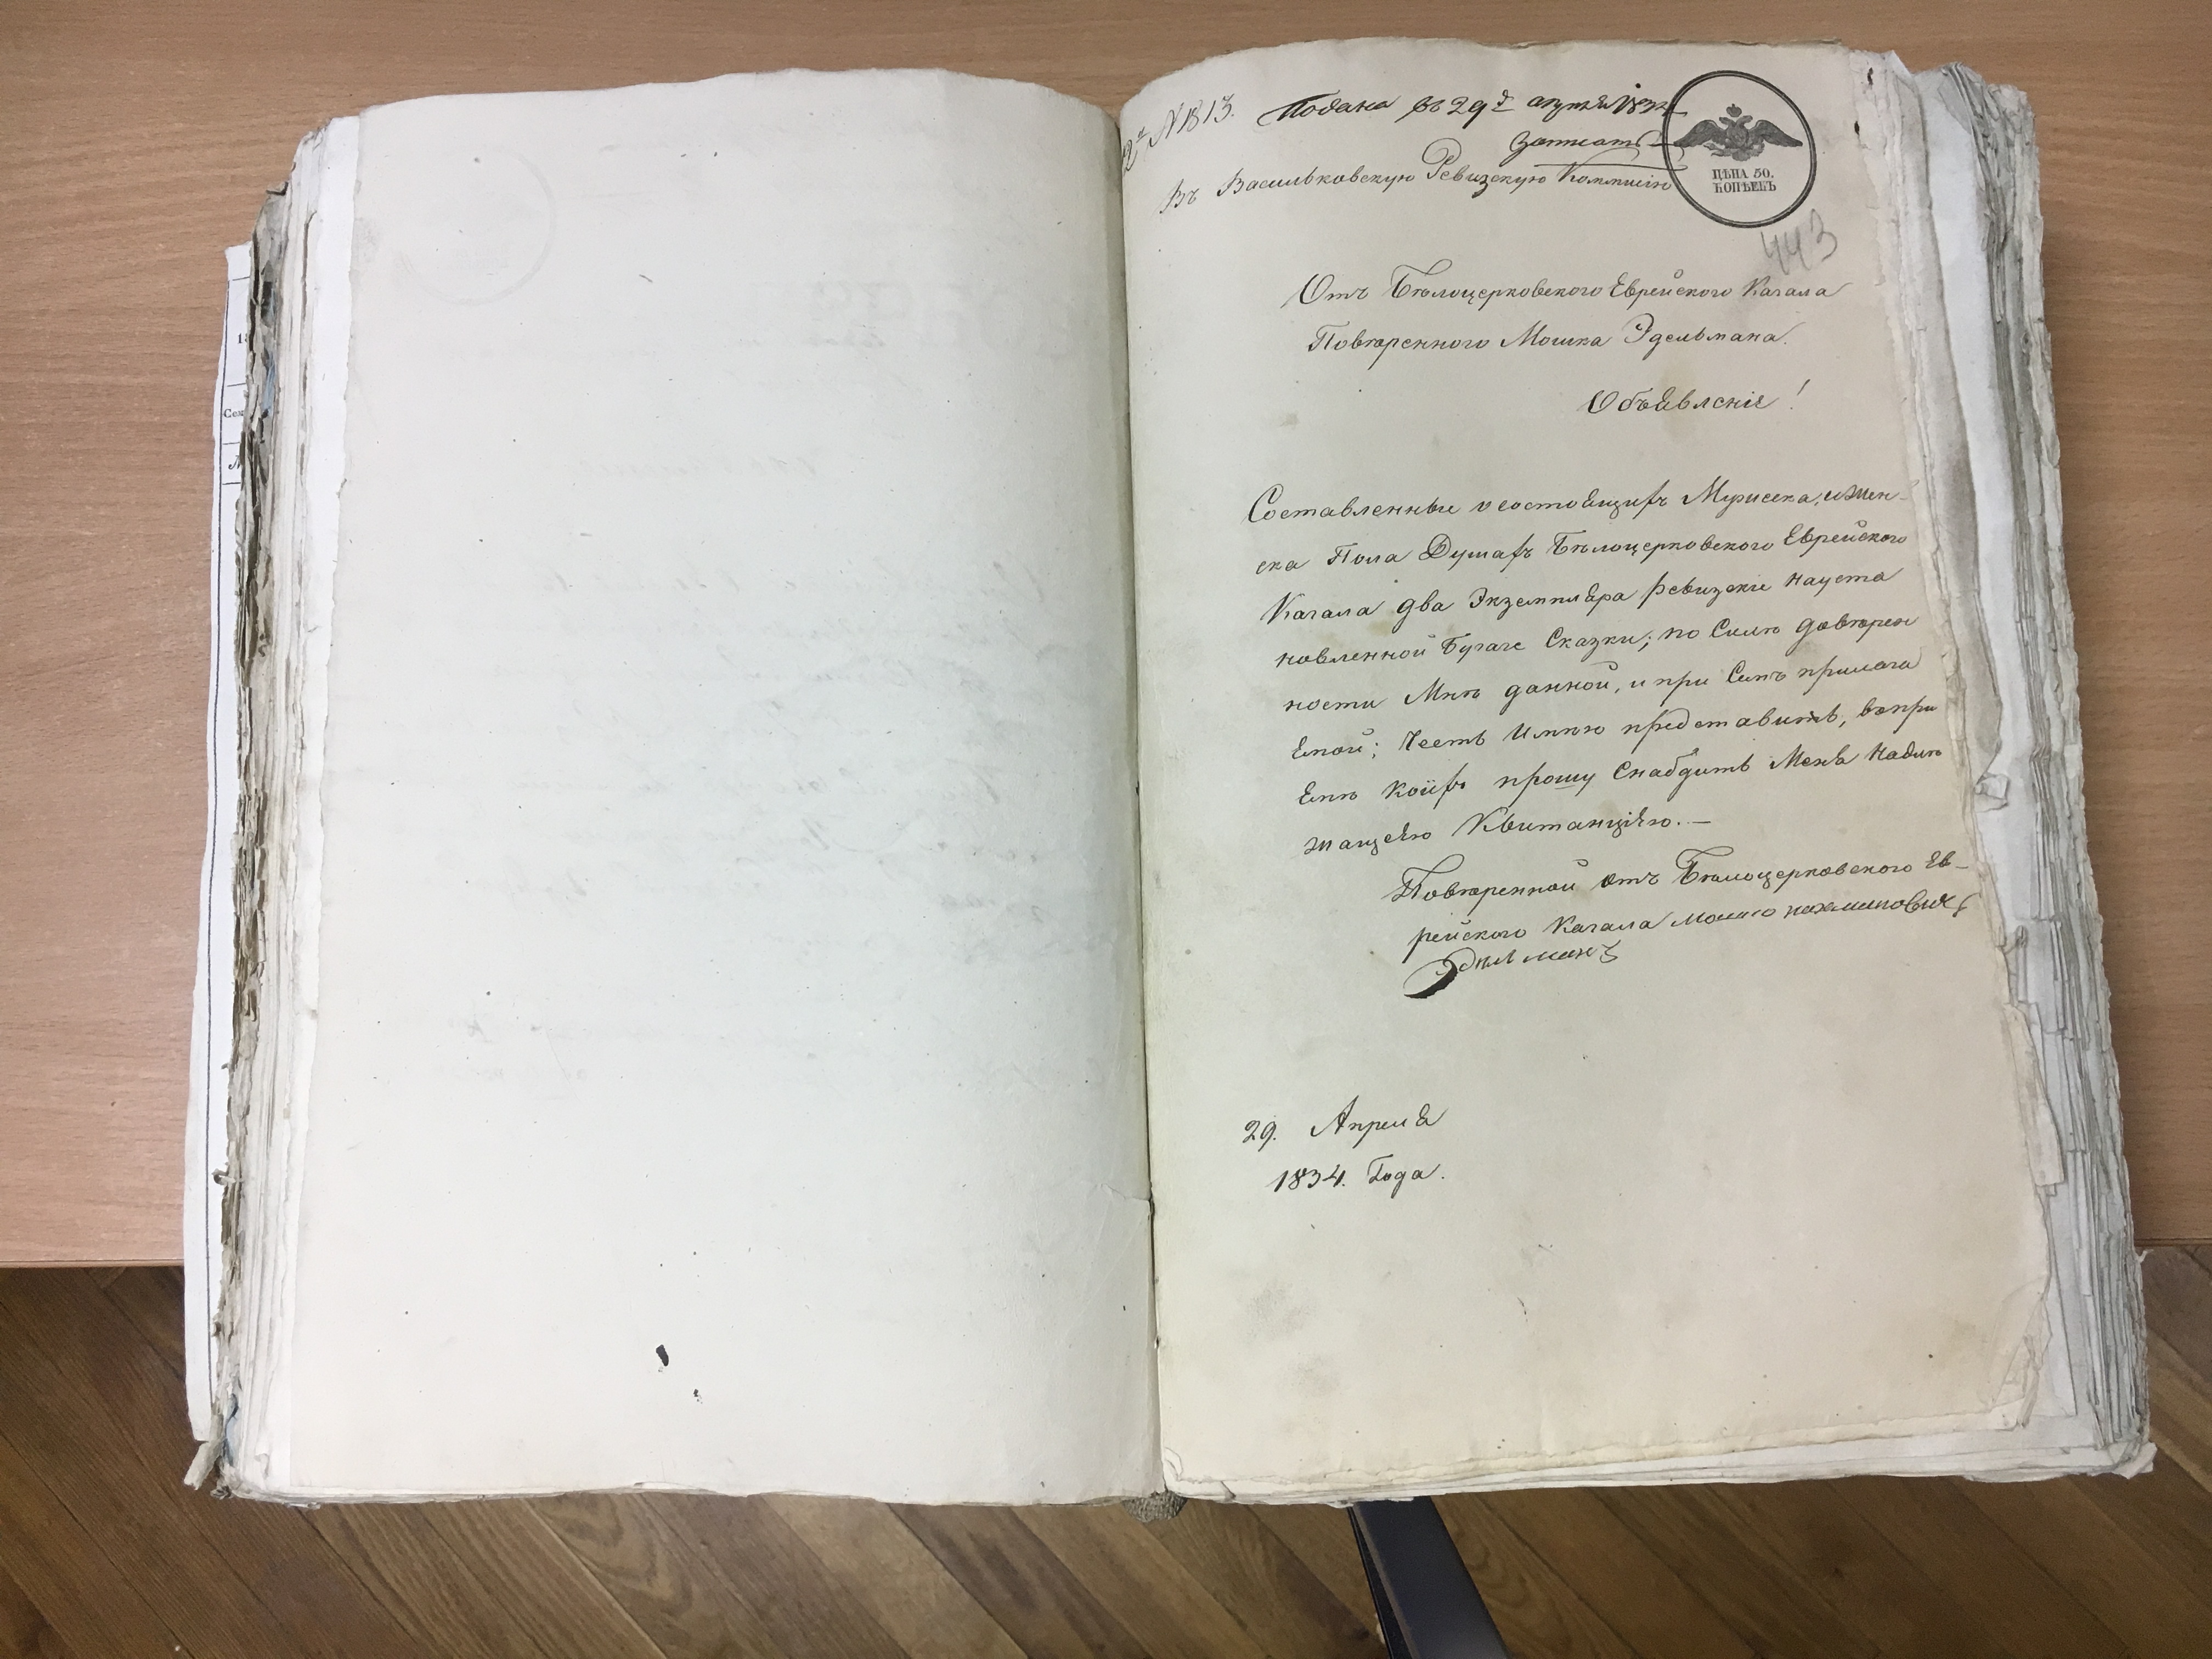 № 1813. Подана въ 29 д апреля 1834
записать
ЦѢНА 50.
КОПѢЕКЪ
Въ Васильковскую Ревизскую Коммисію
443
Отъ Бѣлоцерковского Еврейского Кагала
Повѣренного Мошка Эдельмана.
Объявленіе!
Составленные о состоящихъ Мужеска, и Жен-
ска Пола Душахъ Бѣлоцерковского Еврейского
Кагала два Экземпляра ревизскіе на уста
новленной Бумаге Сказки; по Силѣ довѣрен
ности Мнѣ данной, и при Семъ прилага
емой; Честь Имѣю представить, въ при
емѣ коихъ прошу Снабдить Меня Надлѣ
жащею Квитанціею. —
Повѣренной отъ Бѣлоцерковского Ев-
рейского Кагала Мошко
Эдельманъ
29. Апреля
1834. Года.
1
Сем
№